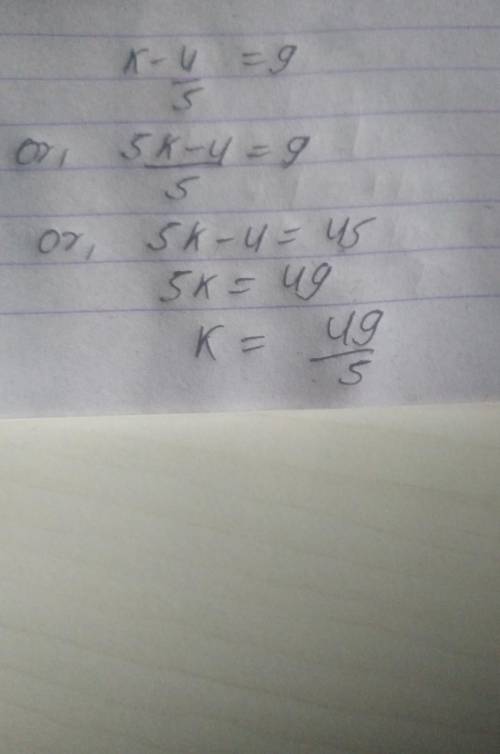 K - 4/5 = 9
or, (5K - 4)/5 = 9
or, 5K - 4 = 45
5K = 49
K = 49/5